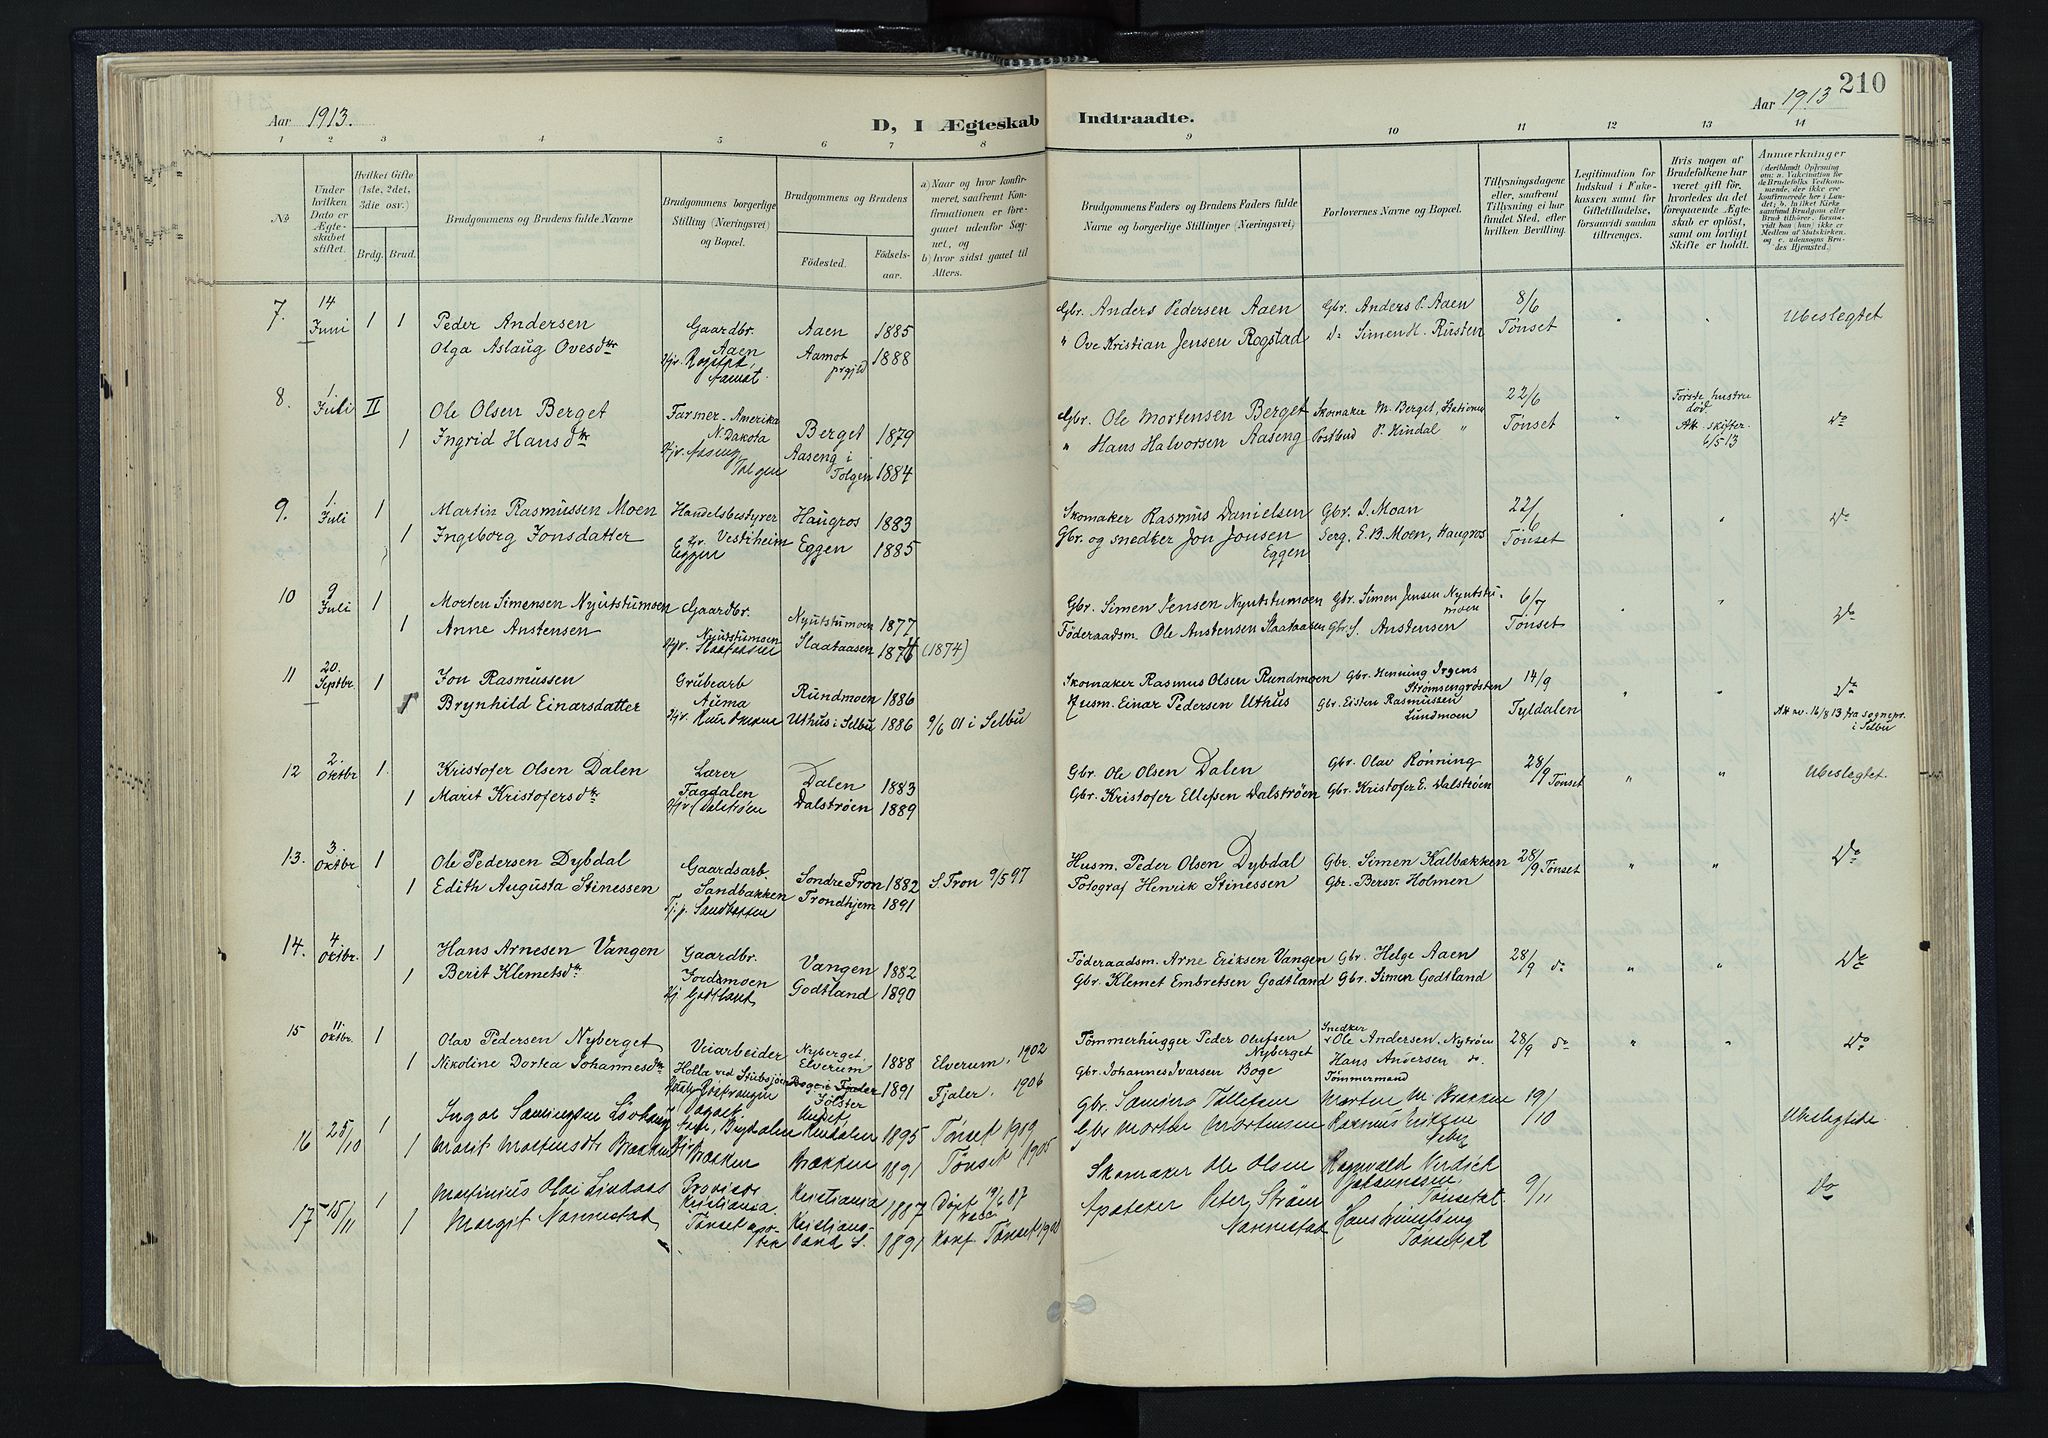 Aar 1913.
D, I Ægteskab Indtraadte.
Aar 1913
210
1 2 3 4 5 6 7 8 9 10 11 12 13 14
No
Under
hvilken
Dato er
Ægte-
skabet
stiftet.
Hvilket Gifte
(1ste, 2det,
3die osv.)
Brdg.
Brud.
Brudgommens og Brudens fulde Navne
Brudgommens borgerlige
Stilling (Næringsvei)
og Bopæl.
Brudgommens og Brudens
Fødested.
Fødsels-
aar.
a) Naar og hvor konfir-
meret, saafremt Kon-
firmationen er fore-
gaaet udenfor Sog-
net, og
b) hvor sidst gaaet til
Alters.
Brudgommens Faders og Brudens Faders fulde
Navne og borgerlige Stillinger (Næringsvei)
Forlovernes Navne og Bopæl.
Tillysningsdagene
eller, saafremt
Tillysning ei har
fundet Sted, efter
hvilken Bevilling.
Legitimation for
Indskud i Enke-
kassen samt for
Giftetilladelse,
forsaavidt saadan
tiltrænges.
Hvis nogen af
Brudefolkene har
været gift før,
hvorledes da det
foregaaende Ægte-
skab er opløst,
samt om lovligt
Skifte er holdt.
Anmærkninger
(deriblandt Oplysning
om: a. Vakcination for
de Brudefolks Vedkom-
mende, der ikke ere
konfirmerede her i Lan-
det; b. hvilket Kirke-
samfund Brudgom eller
Brud tilhører, forsaa-
vidt han (hun) ikke er
Medlem af Statskirken,
og c. udensogns Bru-
des Hjemsted.)
7. 14 Juni 1 1
Peder Andersen Gaardbr. Aaen Aaen 1885
Olga Aslaug Ovesdtr Hjv. Aamot prgjld 1888
Gbr. Anders Pedersen Aaen Gbr. Anders P. Aaen 8/6
" Ove Kristian Jensen Rogstad Do Simen H. Rusten Tönset " " Ubeslegtet
8. 1 Juli II 1
Ole Olsen Berget Farmer-Amerika N. Dakota Berget 1879
Ingrid Hansdtr Hjv. Aaseng Tolgen Aaseng i Tolgen 1884
Gbr. Ole Mortensen Berget Skomaker M. Berget, Stationen 22/6
" Hans Halvorsen Aaseng Postbud P. Hindal " Tönset "
Første hustru
død.
Att. skifter.
6/5 13
do
9. 1. Juli 1 1
Martin Rasmussen Moen Handelsbestyrer Haugros 1883
Ingeborg Jonsdatter Vestiheim Eggen Eggen 1885
Skomaker Rasmus Danielsen Gbr. S. Moan 22/6
Gbr. og snedker Jon Jonsen Eggen Serg. E. B. Moen, Haugros Tönset " " Do
10 9 Juli 1 1
Morten Simensen Nyutstumoen Gaardbr. Nyutstumoen Nyutstumoen 1877
Anne Anstensen Hjv. Slaataasen Slaataasen (1874)
Gbr. Simen Jensen Nyutstumoen Gbr. Simen Jensen Nyutstumoen 6/7
Föderaadsm. Ole Anstensen Slaataasen Gbr. S. Anstensen Tönset " " Do
11 20. Septbr 1 1
Jon Rasmussen Grubearb Auma Rundmoen 1886
Brynhild Einarsdatter Hjv. Uthus i Selbu 1886 9/6 01 i Selbu
Skomaker Rasmus Olsen Rundmoen Gbr. Henning Irgens Strømsengrösten 14/9
Husm. Einar Pedersen Uthus Gbr. Eisten Rasmussen Lundmoen Tyldalen " " Do
Att nv. 16/8 13 fra sognepr.
i Selbu
12 2. Oktbr 1 1
Kristofer Olsen Dalen Lærer Fagdalen Dalen 1883
Marit Kristofersdtr Hjv. Dalströen Dalströen 1889
Gbr. Ole Olsen Dalen Gbr. Olav Rönning 28/9 Tönset " " Ubeslegtet
Gbr. Kristofer Ellefsen Dalströen Gbr. Kristofer E. Dalströen
13. 3. Oktbr 1 1
Ole Pedersen Dybdal Gaardsarb. Sandbakken Söndre Fron 1882 S. Fron 9/5 97
Edith Augusta Stinessen Tj. p. Sandbakken Trondhjem 1891
Husm. Peder Olsen Dybdal Gbr. Simen Kalbækken 28/9 Tönset " " Do
Fotograf Henrik Stinessen Gbr. Bersv. Holmen
14. 4 Oktbr. 1 1
Hans Arnesen Vangen Gaardbr. Jordsmoen Vangen 1882
Berit Klemetsdtr Hj Godtland Godtland 1890
Föderaadsm. Arne Eriksen Vangen Gbr. Helge Aaen 28/9 do " " Do
Gbr. Klemet Embretsen Godtland Gbr. Simen Godtland
15 11. Oktbr. 1 1
Olav Pedersen Nyberget Veiarbeider Nyberget. Elverum 1888 Elverum. 1902
Nikoline Dortea Johannesdtr Holla ved Stubsjöen Jölster 1891 Fjaler. 1906
Tömmerhugger Peder Olufsen Nyberget Snedker Ole Andersen, Nytröen 28/9 do " " Do
Gbr. Johannes Ivarsen Boge Hans Andersen do. Tömmermand
16 25/10 1 1
Ingar Sæmingsen Brydalen 1895 Tönset 1909
Marit Mortensdtr Brækken Hjv. Brækken Brækken 1891 Tönset 1905
Gbr. Sæming Tollefsen Morten M. Brækken 19/10 Ubeslegtede
Gbr Morten Mortensen Rasmus Eriksen
17 15/11 1 1
Martinius Olai Lindaas Provisor Kristiania. Kristiania 1887 Döpt 19/6 87
Margit Nannestad Tönset apotek Kristiansand S. 1891 Konf Tönset
Skomaker Ole Olsen Ragnvald Johannesen, Tönset 9/11 Do
Apoteker Peter Ström Nannestad Hans Tönset